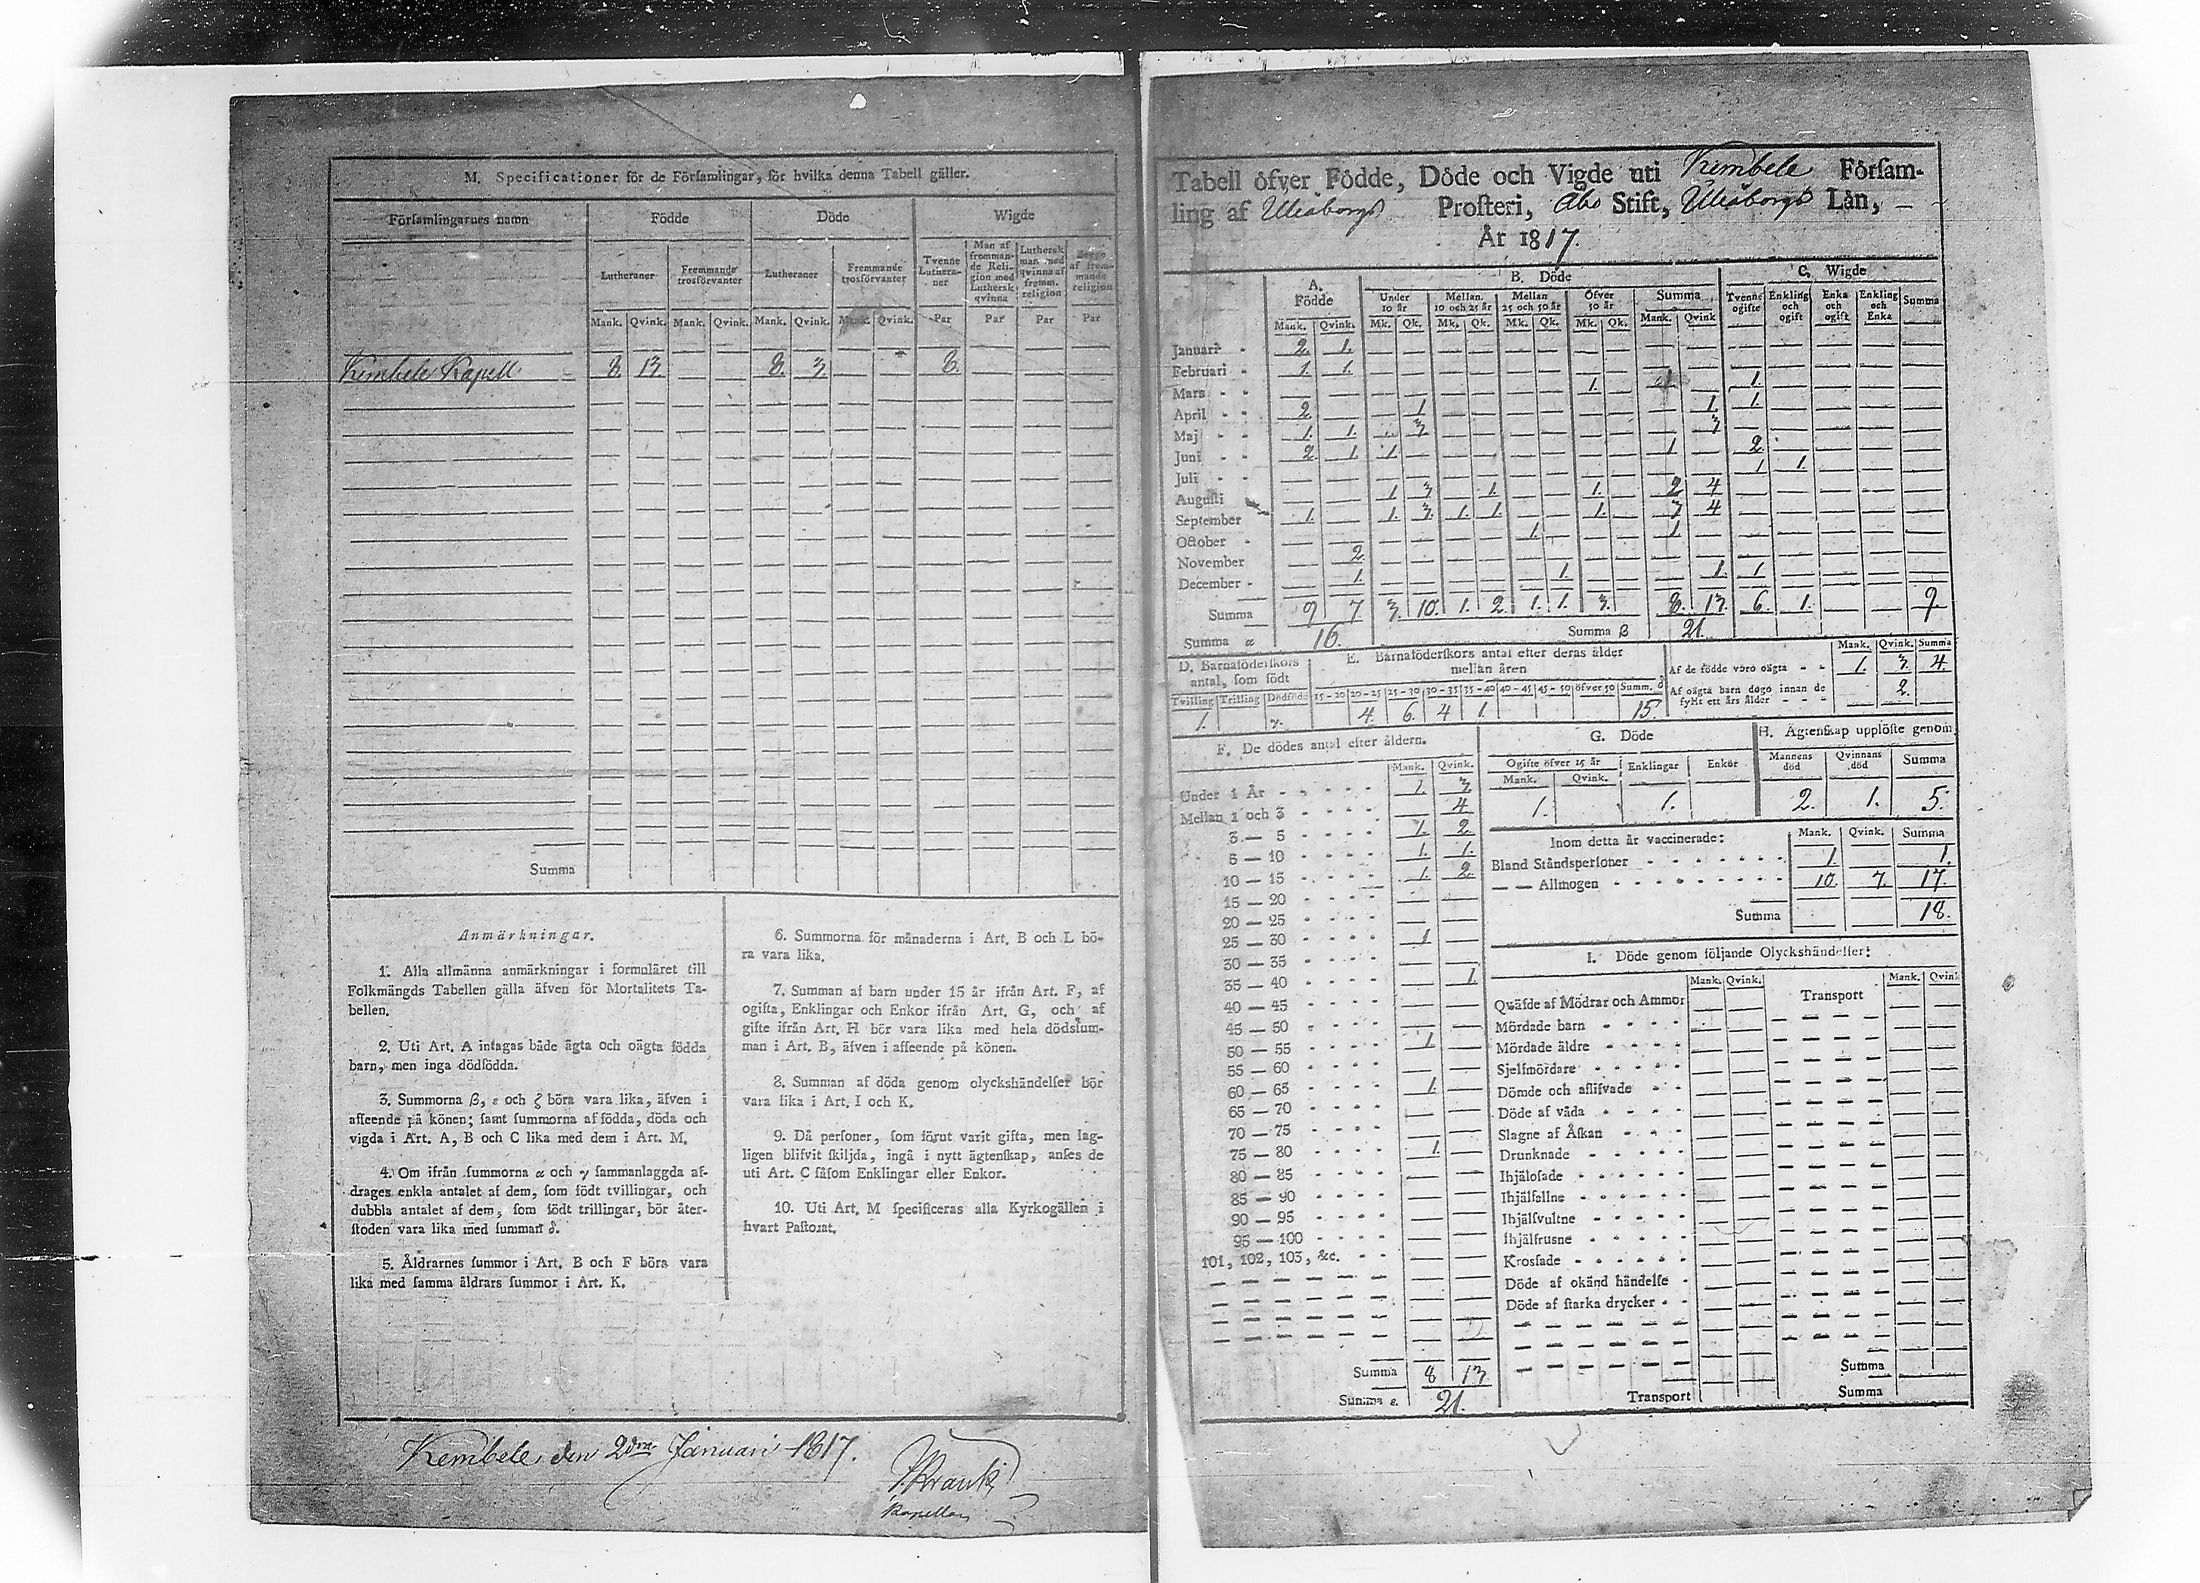 M. Specificationer för de Församlingar, för hvilka denna Tabell gäller.
Församlingarnes namn Födde Döde Wigde
Lutheraner Fremmande trosförvanter Lutheraner Fremmande trosförvanter Tvenne Lutheraner Man af fremmande Religion med Luthersk qvinna Luthersk man med qvinna af fremm. religion Begge af fremmande religion
Mank. Qvink. Mank. Qvink. Mank. Qvink. Mank. Qvink. Par Par Par Par
Kembele Kapell 8. 13. 8. 3. 6.
Summa
Anmärkningar.
1. Alla allmänna anmärkningar i formuläret till
Folkmängds Tabellen gälla äfven för Mortalitets Ta-
bellen.
2. Uti Art. A intagas både ägta och oägta födda
barn, men inga dödfödda.
3. Summorna β, ε och ζ böra vara lika, äfven i
afseende på könen; samt summorna af födda, döda och
vigda i Art. A, B och C lika med dem i Art. M.
4. Om ifrån summorna α och γ sammanlaggda af-
drages enkla antalet af dem, som födt tvillingar, och
dubbla antalet af dem, som födt trillingar, bör åter-
stoden vara lika med summan δ.
5. Åldrarnes summor i Art. B och F böra vara
lika med samma åldrars summor i Art. K.
6. Summorna för månaderna i Art. B och L bö-
ra vara lika.
7. Summan af barn under 15 år ifrån Art. F, af
ogifta, Enklingar och Enkor ifrån Art. G, och af
gifte ifrån Art. H bör vara lika med hela dödssum-
man i Art. B, äfven i afseende på könen.
8. Summan af döda genom olyckshändelser bör
vara lika i Art. I och K.
9. Då personer, som förut varit gifta, men lag-
ligen blifvit skiljda, ingå i nytt ägtenskap, anses de
uti Art. C såsom Enklingar eller Enkor.
10. Uti Art. M specificeras alla Kyrkogällen i
hvart Pastorat.
Kembele den 2dra Januari 1817.
Kapellan
Tabell öfver Födde, Döde och Vigde uti Kembele Försam-
ling af Uleåborgs Prosteri, Åbo Stift, Uleåborgs Län,
År 1817.
A. Födde B. Döde C. Wigde
Under 10 år Mellan 10 och 25 år Mellan 25 och 50 år Öfver 50 år Summa Tvenne ogifte Enkling och ogift Enka och ogift Enkling och Enka Summa
Mank. Qvink. Mk. Qk. Mk. Qk. Mk. Qk. Mk. Qk. Mank. Qvink
Januari 2. 1.
Februari 1. 1.
Mars 1. 1. 1.
April 2. 1 1. 1.
Maj 1. 1. 3. 3.
Juni 2. 1 1. 1 2.
Juli 1 1.
Augusti 1. 3. 1. 1. 2 4
September 1. 1. 3. 1. 1. 1. 3 4
October 1. 1.
November 2.
December 1. 1. 1. 1.
Summa 9 7 3. 10. 1. 2. 1. 1. 3. 8. 13. 6. 1. 7
Summa α 16. Summa β 21.
D. Barnaföderskors antal, som födt
Tvilling Trilling Dödföda
1.
E. Barnaföderskors antal efter deras ålder mellan åren
15-20 20-25 25-30 30-35 35-40 40-45 45-50 öfver 50 Summ. δ
4. 6. 4 1. 15.
Mank. Qvink. Summa
Af de födde voro oägta 1. 3. 4.
Af oägta barn dogo innan de
fyllt ett års ålder 2.
F. De dödes antal efter åldern.
Mank. Qvink.
Under 1 År 1. 3
Mellan 1 och 3 4.
3 — 5 1. 2.
5 — 10 1. 1.
10 — 15 1. 2.
15 — 20
20 — 25
25 — 30 1
30 — 35
35 — 40 1.
40 — 45
45 — 50
50 — 55 1.
55 — 60
60 — 65 1.
65 — 70
70 — 75
75 — 80 1.
80 — 85
85 — 90
90 — 95
95 — 100
101, 102, 103, &c.
Summa 8 13
Summa ε. 21.
G. Döde
Ogifte öfver 15 år Enklingar Enkor
Mank. Qvink.
1. 1.
H. Ägtenskap upplöste genom
Mannens död Qvinnans död Summa
2. 1. 5.
Inom detta år vaccinerade: Mank. Qvink. Summa
Bland Ståndspersoner 1. 1.
— — Allmogen 10. 7. 17.
Summa 18.
I. Döde genom följande Olyckshändelser:
Mank. Qvink. Mank. Qvink
Qväfde af Mödrar och Ammor Transport
Mördade barn
Mördade äldre
Sjelfmördare
Dömde och aflifvade
Döde af våda
Slagne af Åskan
Drunknade
Ihjälosade
Ihjälfallne
Ihjälsvultne
Ihjälfrusne
Krossade
Döde af okänd händelse
Döde af starka drycker
Summa
Transport Summa